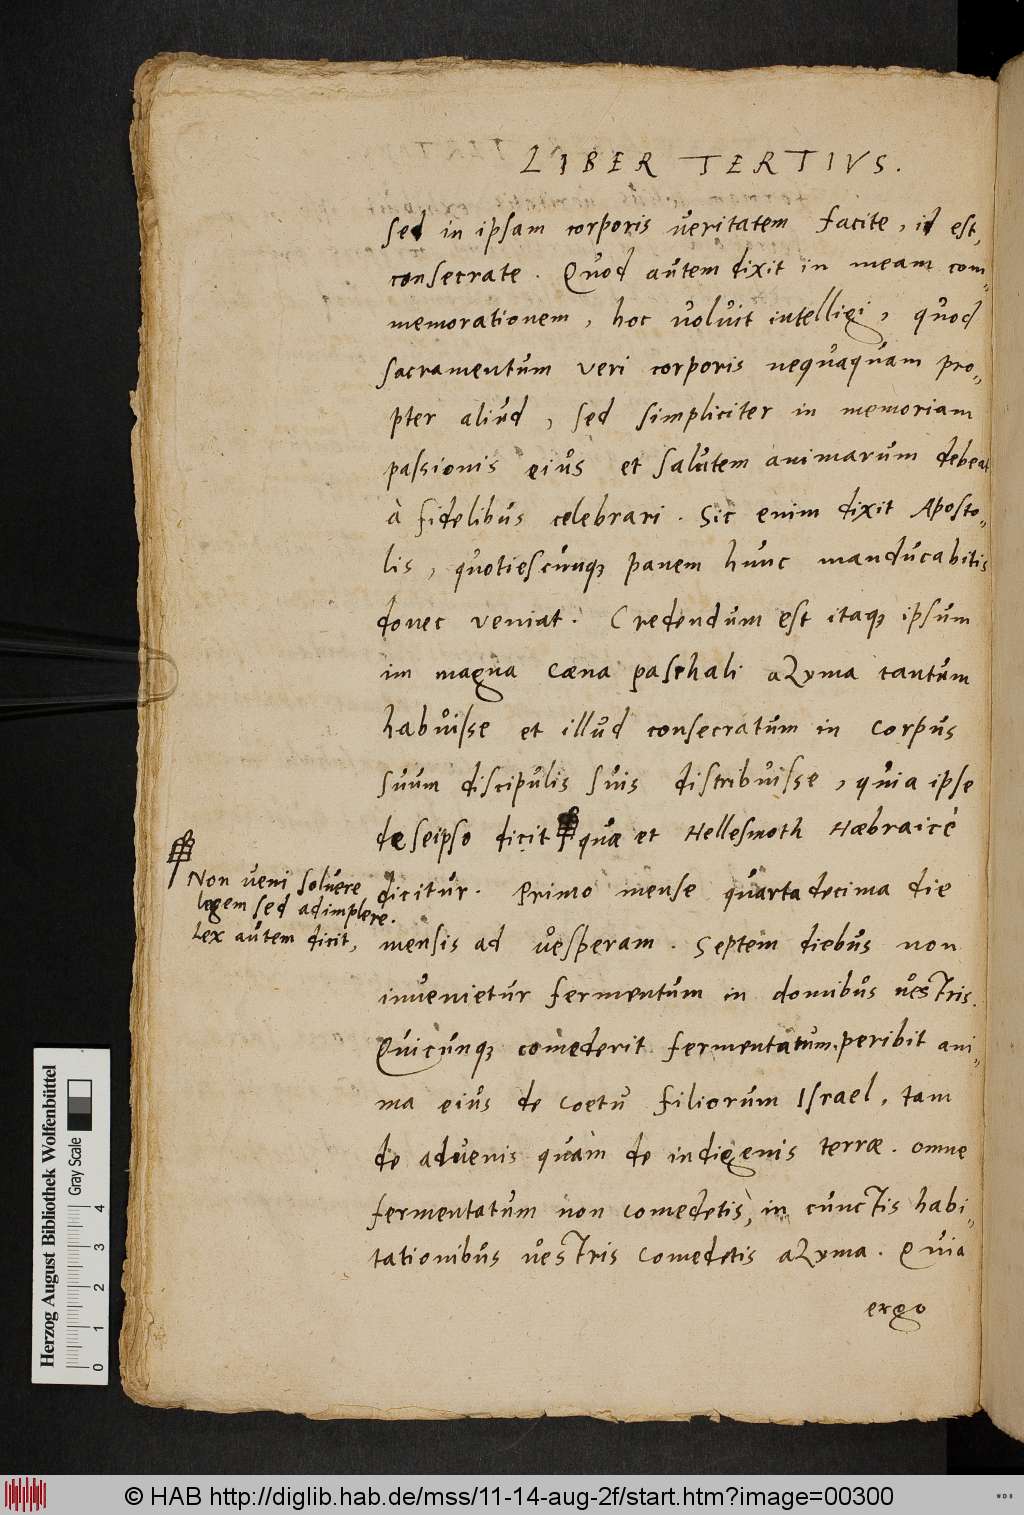 LIBER TERTIVS.
sed in ipsam corporis veritatem facite, id est,
consecrate. Quod autem dixit in meam com„
memorationem, hoc voluit intelligi, quod
sacramentum veri corporis nequaquam pro„
pter aliud, sed simpliciter in memoriam
passionis eius et salutem animarum debeat
à fidelibus celebrari. Sic enim dixit Aposto„
lis, quotiescunqȝ panem hunc manducabitis
donec veniat. Credendum est itaqȝ ipsum
im magna cæna paschali azyma tantum
habuisse et illud consecratum in corpus
suum discipulis suis distribuisse, quia ipse
de seipso dicit quæ et Hellesmoth Hæbraicè
Non veni solvere
legem sed adimplere.
Lex autem dicit,
dicitur. Primo mense quarta decima die
mensis ad vesperam. Septem diebus non
invenietur fermentum in domibus vestris.
Quicunqȝ comederit fermentatum, peribit ani„
ma eius de coetu filiorum Israel, tam
de advenis quàm de indigenis terræ. omne
fermentatum non comedetis, in cunctis habi„
tationibus vestris comedetis azyma. Quia
ergo
Herzog August Bibliothek Wolfenbüttel
Gray Scale
0 1 2 3 4
© HAB http://diglib.hab.de/mss/11-14-aug-2f/start.htm?image=00300